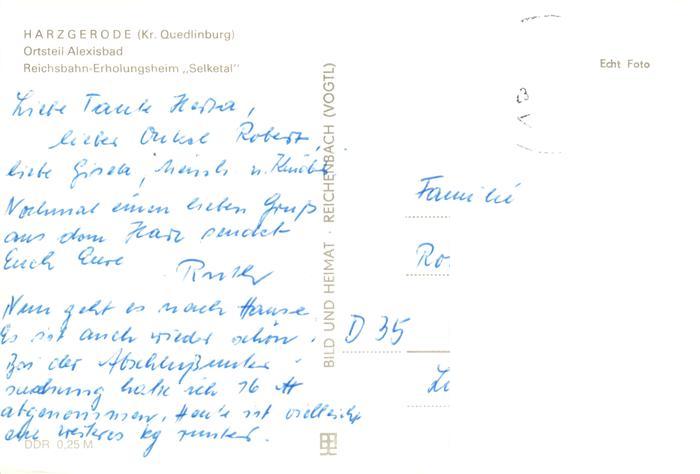 HARZGERODE (Kr. Quedlinburg)
Ortsteil Alexisbad
Reichsbahn-Erholungsheim „Selketal"
Echt Foto
Liebe Tante Herta,
lieber Onkel Robert,
liebe Gisela, u. Kinder
Nochmal einen lieben Gruß
aus dem Harz sendet
Euch Eure
Ruth
Nun geht es nach Hause.
Es ist auch wieder schön.
Bei der Abschlußunter-
suchung habe ich 16 ℔
abgenommen. Heute ist vielleicht
ein weiteres kg runter.
DDR 0,25 M
BILD UND HEIMAT · REICHENBACH (VOGTL)
Familie
Ro
D 35